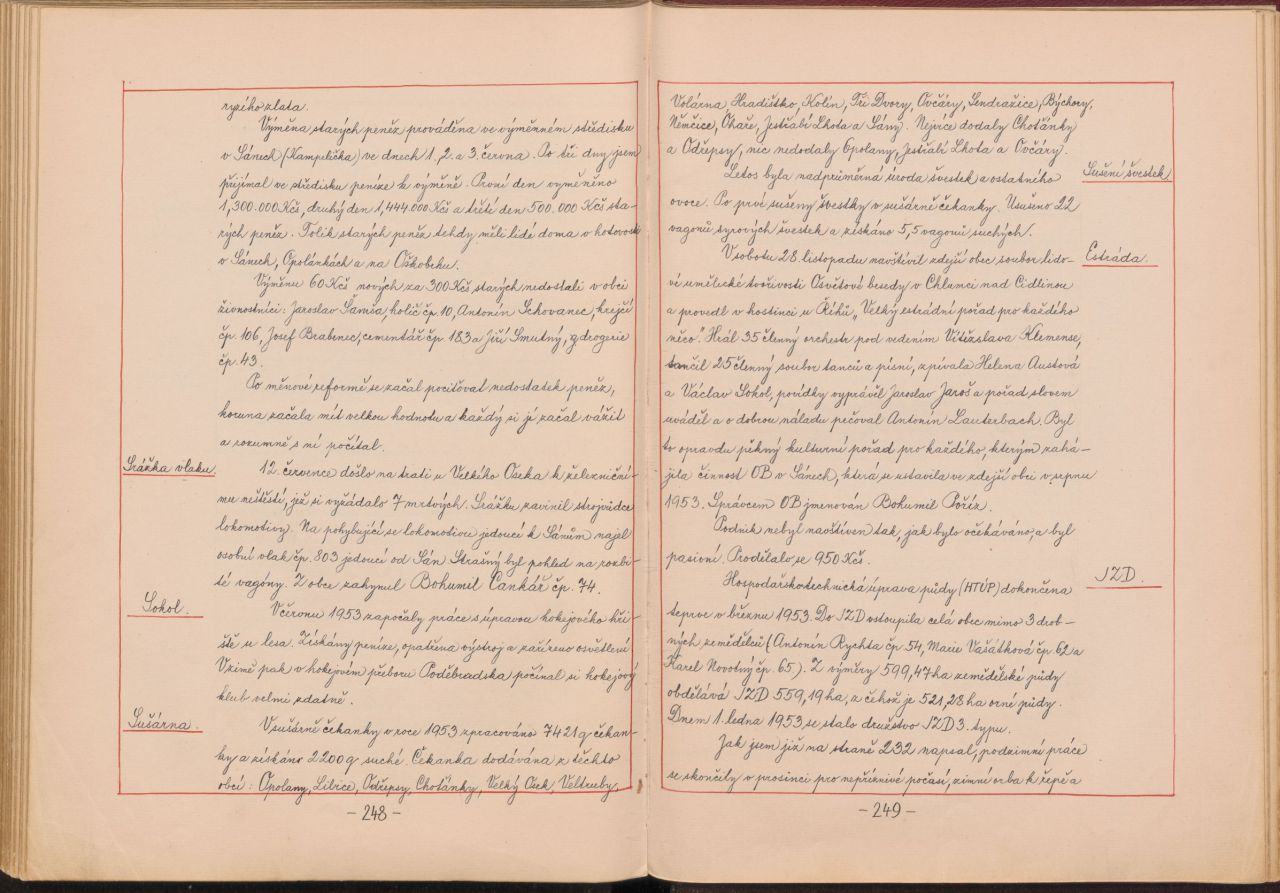 ryzího zlata.
Výměna starých peněz prováděna ve výměnném středisku
v Sánech (Kampelička) ve dnech 1. 2. a 3. června. Po tři dny jsem
přijímal ve středisku peníze k výměně. První den vyměněno
1,300.000 Kčs, druhý den 1,444.000 Kčs a třetí den 500.000 Kčs sta-
rých peněz. Tolik starých peněz tehdy měli lidé doma v hotovosti
v Sánech, Opolánkách a na Oškobrhu.
Výměnu 60 Kčs nových za 300 Kčs starých nedostali v obci
živnostníci: Jaroslav Šamša, holič čp. 10, Antonín Schovanec, krejčí
čp. 106, Josef Brabenec, cementář čp. 183 a Jiří Smutný, drogerie
čp. 43.
Po měnové reformě se začal pociťovat nedostatek peněz,
koruna začala mít velkou hodnotu a každý si jí začal vážit
a rozumně s ní počítal.
Srážka vlaku.
12. července došlo na trati u Velkého Oseka k železniční-
mu neštěstí, jež si vyžádalo 7 mrtvých. Srážku zavinil strojvůdce
lokomotivy. Na pohybující se lokomotivu jedoucí k Sánům najel
osobní vlak čp. 803 jedoucí od Sán. Strašný byl pohled na rozbi-
té vagóny. Z obce zahynul Bohumil Cankář čp. 74.
Sokol.
V červnu 1953 započaly práce s úpravou hokejového hři-
ště u lesa. Získány peníze, opatřena výstroj a zařízeno osvětlení.
V zimě pak v hokejovém přeboru Poděbradska počínal si hokejový
klub velmi zdatně.
Sušárna.
V sušárně čekanky v roce 1953 zpracováno 7421 q čekan-
ky a získáno 2200 q suché. Čekanka dodávána z těchto
obcí: Opolany, Libice, Odřepsy, Choťánky, Velký Osek, Veltruby,
- 248 -
Volárna, Hradištko, Kolín, Tři Dvory, Ovčáry, Sendražice, Býchory,
Němčice, Ohaře, Jestřabí Lhota a Sány. Nejvíce dodaly Choťánky
a Odřepsy, nic nedodaly Opolany, Jestřabí Lhota a Ovčáry.
Sušení švestek
Letos byla nadprůměrná úroda švestek a ostatního
ovoce. Po prvé sušeny švestky v sušárně čekanky. Usušeno 22
vagonů syrových švestek a získáno 5,5 vagonů suchých.
Estráda.
V sobotu 28. listopadu navštívil zdejší obec soubor lido-
vé umělecké tvořivosti Osvětové besedy v Chlumci nad Cidlinou
a provedl v hostinci u Říhů „Velký estrádní pořad pro každého
něco." Hrál 35 členný orchestr pod vedením Vítězslava Klemense,
tančil 25 členný soubor tanců a písní, zpívala Helena Austová
a Václav Sokol, povídky vyprávěl Jaroslav Jaroš a pořad slovem
uváděl a o dobrou náladu pečoval Antonín Lauterbach. Byl
to opravdu pěkný kulturní pořad pro každého, kterým zahá-
jila činnost OB v Sánech, která se ustavila ve zdejší obci v srpnu
1953. Správcem OB jmenován Bohumil Pöříz.
Podnik nebyl navštíven tak, jak bylo očekáváno, a byl
pasivní. Prodělalo se 950 Kčs.
JZD.
Hospodářskotechnická úprava půdy (HTÚP) dokončena
teprve v březnu 1953. Do JZD vstoupila celá obec mimo 3 drob-
ných zemědělců (Antonín Rychta čp. 54, Marie Vašátková čp. 62 a
Karel Novotný čp. 65.). Z výměry 599,47 ha zemědělské půdy
obdělává JZD 559,19 ha, z čehož je 521,28 ha orné půdy.
Dnem 1. ledna 1953 se stalo družstvo JZD 3. typu.
Jak jsem již na straně 232 napsal, podzimní práce
se skončily v prosinci pro nepříznivé počasí, zimní orba k řepě a
- 249 -